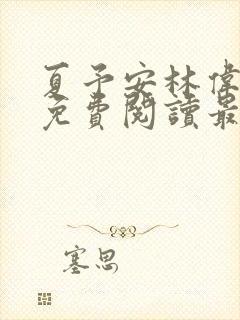 夏予安林偉
免費閱讀最
塞思